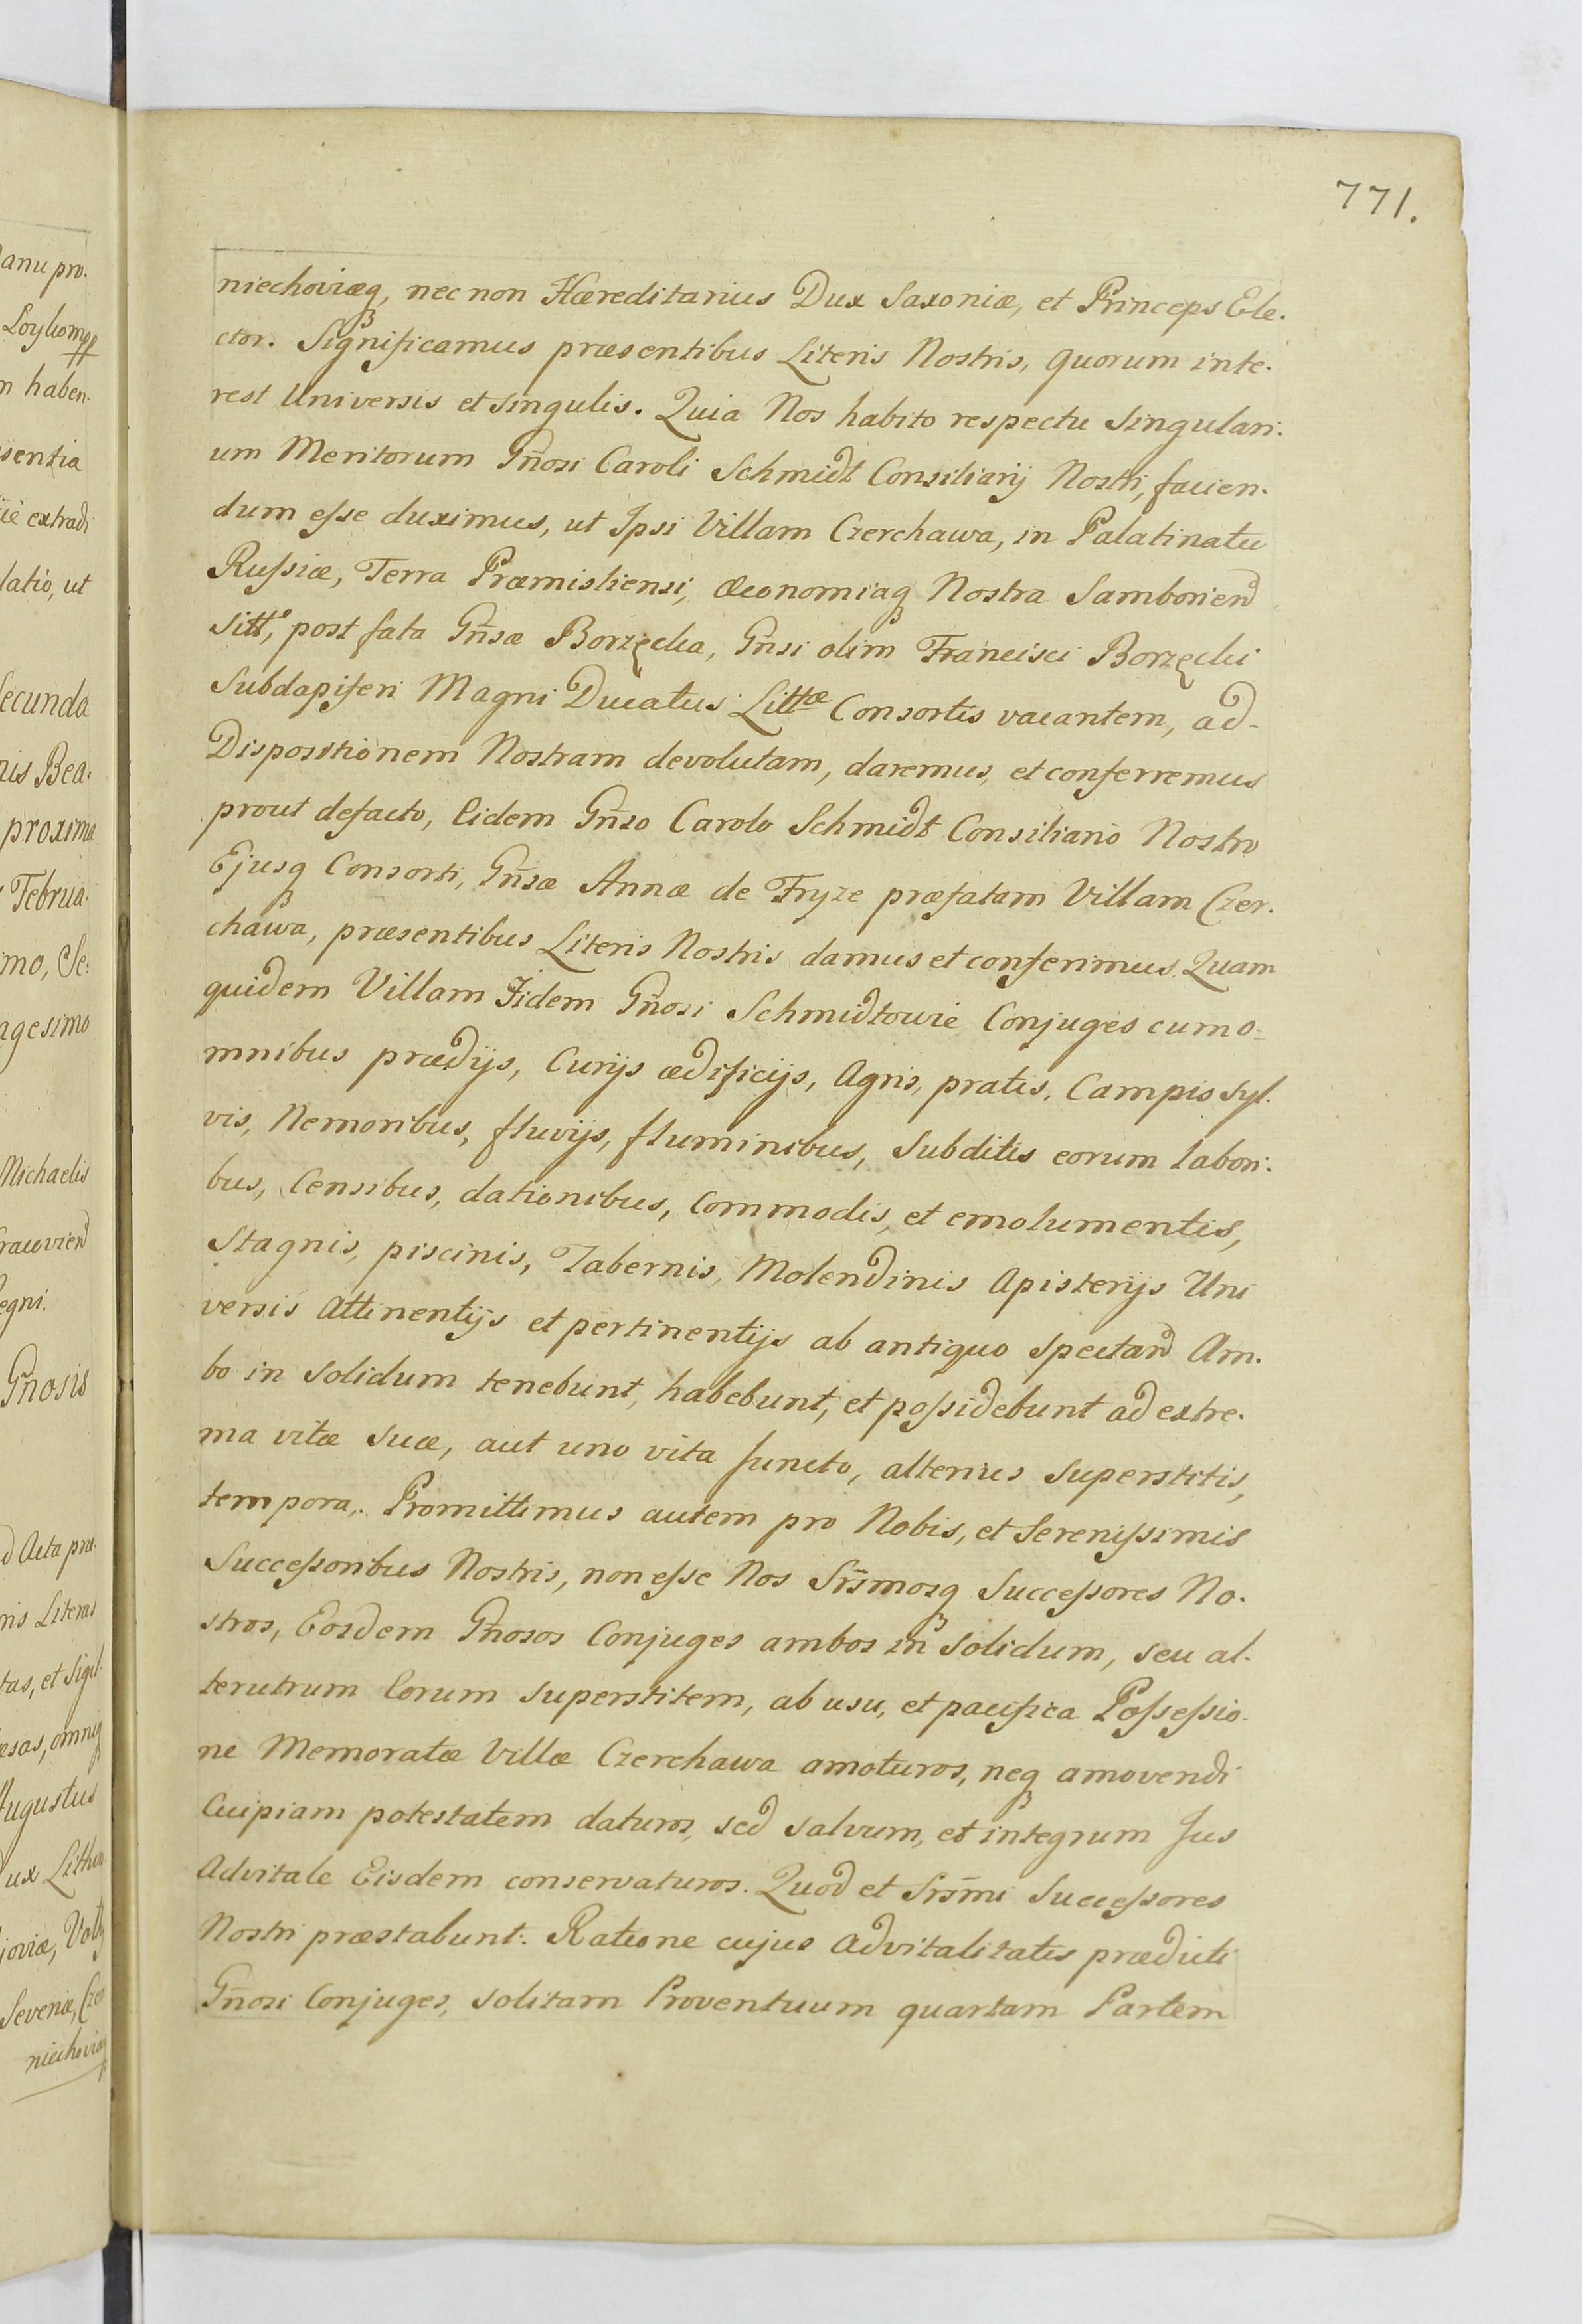 771.
niechoviæq, nec non Hæreditarius Dux Saxoniæ, et Princeps Ele.
ctor. Significamus præsentibus Literis Nostris, quorum inte.
rest Universis et singulis. Quia Nos habito respectu Singulari.
um Meritorum Gñosi Caroli Schmidt Consiliarij Nostri, facien.
dum esse duximus, ut Ipsi Villam Czerchawa, in Palatinatu
Russiæ, Terra Præmisliensi, Œconomiaq Nostra Samborien
sittº, post fata Gñsæ Borzęcka, Gñsi olim Francisci Borzęcki
Subdapiferi Magni Ducatus Littæ Consortis vacantem, ad-
Dispositionem Nostram devolutam, daremus, et conferremus
prout defacto, Eidem Gñso Carolo Schmidt Consiliario Nostro
Ejusq Consorti, Gñsæ Annæ de Fryze præfatam Villam Czer.
chawa, præsentibus Literis Nostris damus et conferimus. Quam
quidem Villam Iidem Gñosi Schmidtowie Conjuges cum o-
mnibus prædijs, Curijs ædificijs, Agris, pratis, Campis Syl.
vis, Nemoribus, fluvijs, fluminibus, Subditis eorum labori.
bus, Censibus, dationibus, Commodis, et emolumentis,
Stagnis, piscinis, Tabernis, Molendinis Apisterijs Uni
versis Attinentijs et pertinentijs ab antiquo spectand Am.
bo in Solidum tenebunt, habebunt, et possidebunt ad extre.
ma vitæ suæ, aut uno vita functo, alterius Superstitis,
tempora,. Promittimus autem pro Nobis, et Serenissimis
Successoribus Nostris, non esse Nos Srismosq Successores No.
stros, Eosdem Gñosos Conjuges ambos in Solidum, seu al.
terutrum Eorum superstitem, ab usu, et pacifica Possessio.
ne Memoratæ Villæ Czerchawa amoturos, neq amovendi
Cuipiam potestatem daturos, sed salvum, et integrum Jus
Advitale Eisdem conservaturos. Quod et Srsmi Successores
Nostri præstabunt. Ratione cujus Advitalitatis prædicti
Gñosi Conjuges, solitam Proventuum quartam Partem